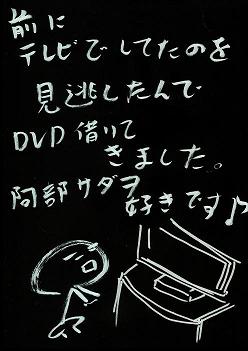 前に
テレビでしてたのを
見逃したんで
DVD借りて
きました。
阿部サダヲ
好きです♪